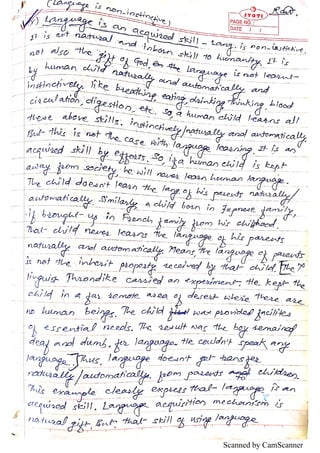 (Language is non-instinctive)
JYOTI
PAGE NO.
DATE / /
Language is an acquired skill - Lang. is non-instinctive.
It is not natural and inborn skill to humanity. It is
not also the gift of God, the language is not learnt
by human child naturally and automatically and
instinctively like breathing, eating, drinking, thinking, blood
circulation, digestion, etc. So a human child learns all
these above skills. instinctively/naturally and automatically.
But this is not the case with language learning. It is an
acquired skill by efforts. So, if a human child is kept
away from society, he will never learn human language.
The child doesn't learn the lang of his parents naturally/
automatically. Similarly, a child born in Japnese family,
if brought-up in French family from his childhood,
That child never learns the language of his parents
naturally and automatically Means the language of parents
is not the inherit property received by that child. [The
linguist Throndike carried an experiment. He kept the
child in a far remote area of desert where there are
no human beings. The child was provided facilities
of essential needs. The result was the boy remained
deaf and dumb. for language. He couldn't speak any
language.] Thus, language doesn't get transfer
naturally/automatically. from parents to children.
This example clearly express that language is an
acquired skill. Language acquisition mechanism is
natural gift. But that skill of using language
Scanned by CamScanner